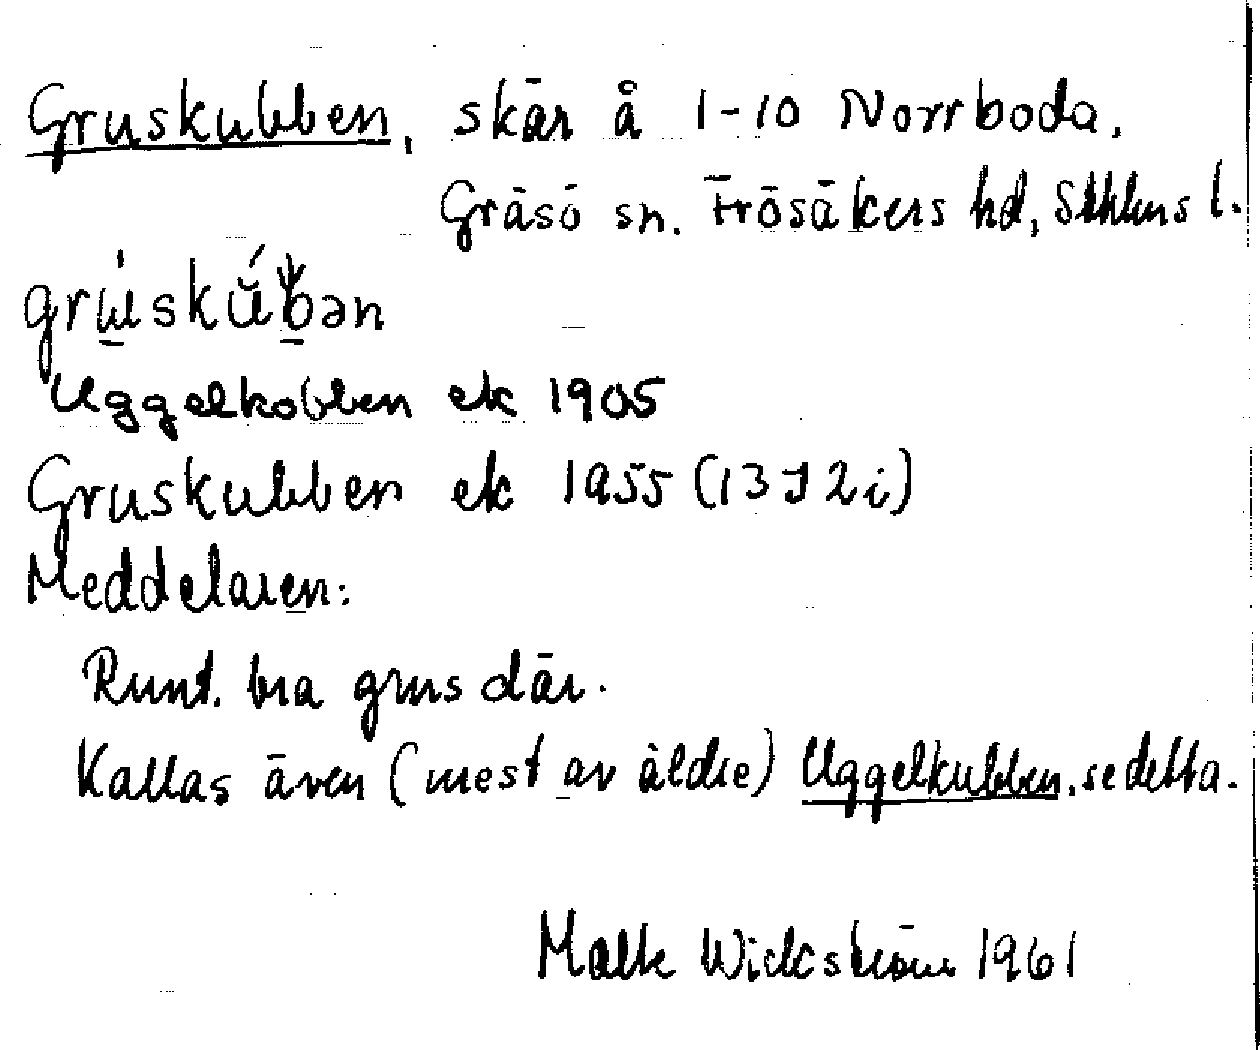 Gruskubben, skär å 1-10 Norrboda.
Gräsö sn. Frösäkers hd, Sthlms l.
Uggelkobben ek 1905
Gruskubben ek 1955 (13J2i)
Meddelaren:
Runt. bra grus där.
Kallas även (mest av äldre) Uggelkubben, se detta.
Wickström 1961